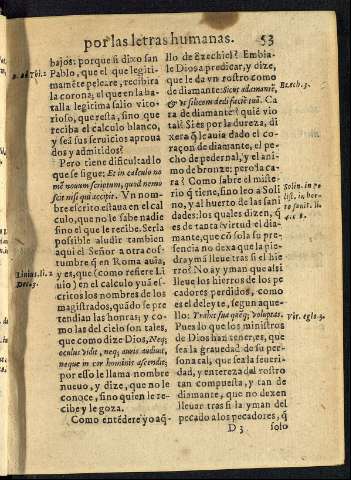 por las letras humanas. 53
bajos: porque si dixo san
Pablo, que el que legiti-
mamẽte peleare, recibira
la corona, el que en la ba-
talla legitima salio vito-
rioso, que resta, sino que
reciba el calculo blanco,
y seã sus seruicios aproua
dos y admitidos?
Pero tiene dificultad lo
que se sigue: Et in calculo no
mẽ nouum scriptum, quod nemo
scit nisi qui accipit. Vn nom-
bre escrito estaua en el cal
culo, que no le sabe nadie
sino el que le recibe. Seria
possible aludir tambien
aqui el Señor a otra cos-
tumbre q̃ en Roma auia,
y es, que (como refiere Li
uio) en el calculo yuã es-
critos los nombres de los
magistrados, quãdo se pre
tendian las honras; y co-
mo las del cielo son tales,
que como dize Dios, Neq;
oculus vidit, neq; auris audiuit,
neque in cor hominis ascendit;
por esso le llama nombre
nueuo, y dize, que no le
conoce, sino quien le reci-
be y le goza.
Como entẽdere yo aq̃-
Linius. li. 2
Deca. 3.
llo de Ezechiel? Embia-
le Dios a predicar, y dize,
que le da vn rostro como
de diamante: sicut adamantẽ,
& vt silicem dedi faciẽ tuã. Ca
ra de diamante? quiẽ vio
tal? Si es por la dureza, di
xera q̃ le auia dado el co-
raçon de diamante, el pe-
cho de pedernal, y el ani-
mo de bronze: pero la ca-
ra? Como sabre el miste-
rio q̃ tiene, sino leo a Soli
no, y al huerto de las sani
dades: los quales dizen, q̃
es de tanta virtud el dia-
mante, que cõ sola su pre-
sencia no dexa que la pie-
dra ymã lleue tras si el hie
rro? No ay yman que assi
lleue los hierros de los pe
cadores perdidos, como
es el deleyte, segun aque-
llo: Trahit sua quẽq; voluptas.
Pues lo que los ministros
de Dios hã de tener, es, que
sea la grauedad de su per-
sona tal, que sea la seueri-
dad, y entereza del rostro
tan compuesta, y tan de
diamante, que no dexen
lleuar tras si la yman del
pecado a los pecadores, q̃
Ezech. 3.
Vir. eglo. 2.
D 3 solo